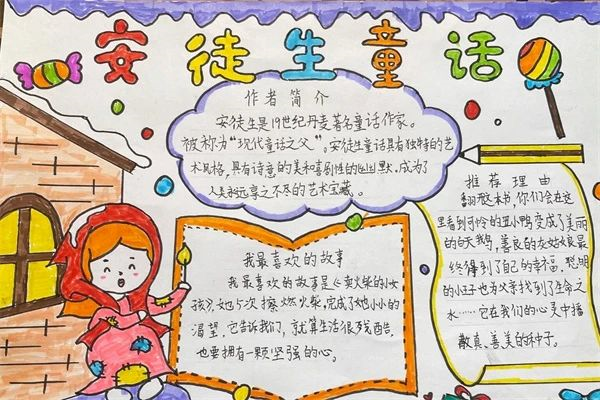 安徒生童话
作者简介
安徒生是19世纪丹麦著名童话作家。
被称为“现代童话之父”。安徒生童话具有独特的艺
术风格,具有诗意的美和喜剧性的幽默.成为了
人类永远享之不尽的艺术宝藏。
我最喜欢的故事
我最喜欢的故事是《卖火柴的小女
孩》,她5次擦燃火柴,完成了她小小的
渴望。它告诉我们,就算生活很残酷,
也要拥有一颗坚强的心。
推荐理由
翻开本书,你们会在这
里看到可怜的丑小鸭变成了美丽
的白天鹅,善良的灰姑娘最
终得到了自己的幸福。聪明
的小王子也为父亲找到了生命之
水……它在我们的心灵中播
散真、善、美的种子。